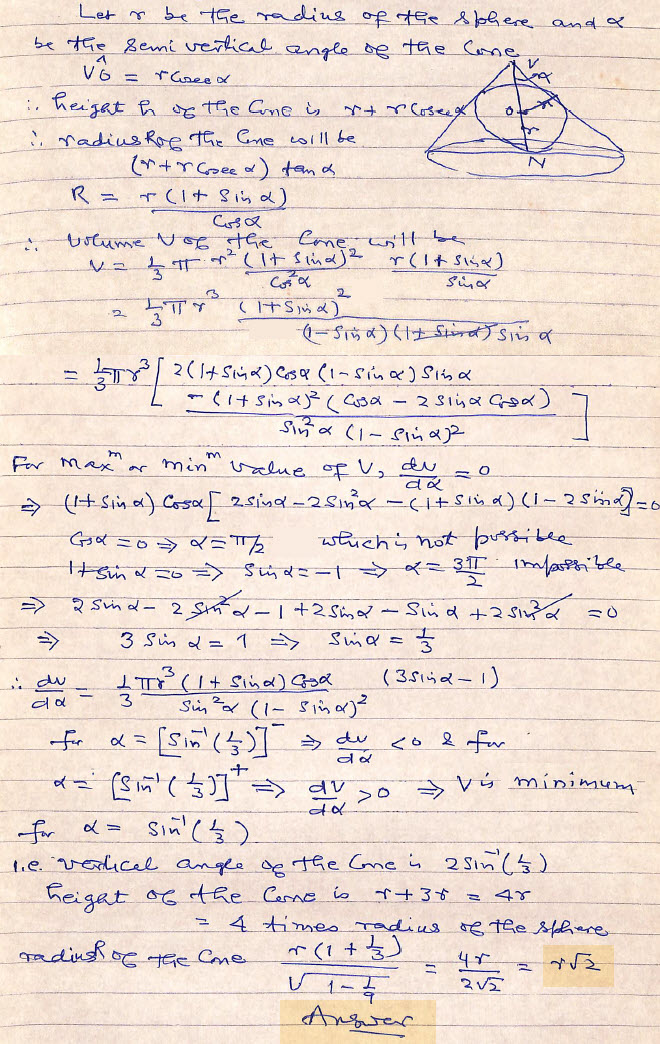 Let r be the radius of the sphere and α
be the semi vertical angle of the Cone
VO = r Cosec α
∴ height h of the Cone is r + r Cosec α
∴ radius R of the Cone will be
(r + r Cosec α) tan α
R = r (1 + Sin α) / Cos α
V
α
O
r
r
N
∴ Volume V of the Cone will be
V = 1/3 π r² (1 + Sin α)² / Cos² α r (1 + Sin α) / Sin α
= 1/3 π r³ (1 + Sin α)² / (1 - Sin α) (1 + Sin α) Sin α
= 1/3 π r³ [ 2 (1 + Sin α) Cos α (1 - Sin α) Sin α
- (1 + Sin α)² (Cos α - 2 Sin α Cos α) / Sin² α (1 - Sin α)² ]
For Max^m or min^m value of V, dv/dα = 0
⇒ (1 + Sin α) Cos α [ 2 Sin α - 2 Sin² α - (1 + Sin α) (1 - 2 Sin α) ] = 0
Cos α = 0 ⇒ α = π/2 which is not possible
1 + Sin α = 0 ⇒ Sin α = -1 ⇒ α = 3π/2 impossible
⇒ 2 Sin α - 2 Sin² α - 1 + 2 Sin α - Sin α + 2 Sin² α = 0
⇒ 3 Sin α = 1 ⇒ Sin α = 1/3
∴ dv/dα = 1/3 π r³ (1 + Sin α) Cos α / Sin² α (1 - Sin α)² (3 Sin α - 1)
for α = [Sin⁻¹ (1/3)]⁻ ⇒ dv/dα < 0 & for
α = [Sin⁻¹ (1/3)]⁺ ⇒ dV/dα > 0 ⇒ V is minimum
for α = Sin⁻¹ (1/3)
i.e. vertical angle of the Cone is 2 Sin⁻¹ (1/3)
height of the Cone is r + 3r = 4r
= 4 times radius of the sphere
radius R of the Cone r (1 + 1/3) / √(1 - 1/9) = 4r / 2√2 = r√2
Answer